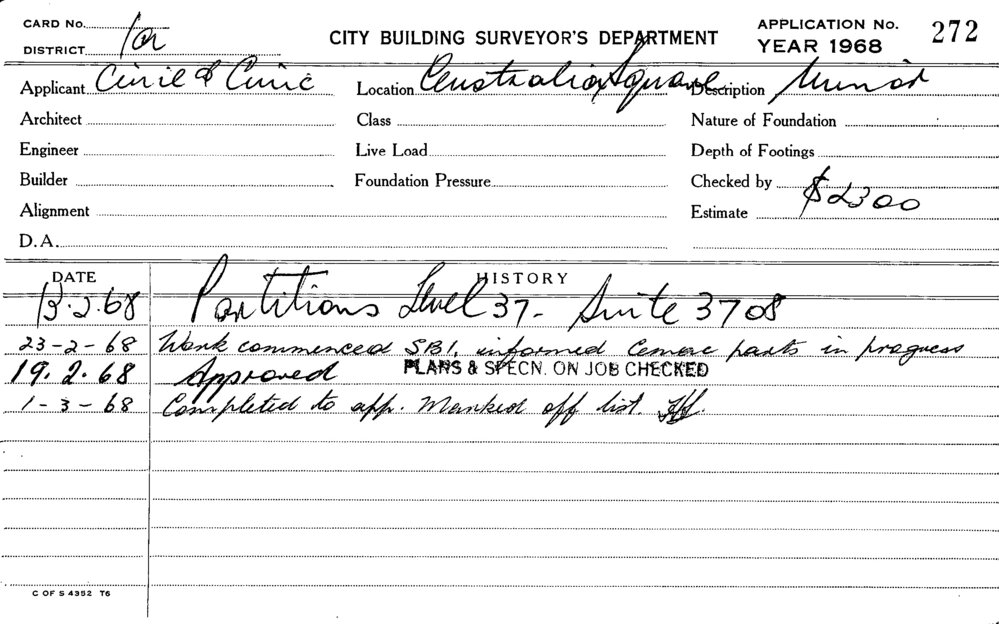 CARD No. 1a
DISTRICT
CITY BUILDING SURVEYOR'S DEPARTMENT
APPLICATION No. 272
YEAR 1968
Applicant Civil & Civic Location Australia Square Description Minor
Architect Class Nature of Foundation
Engineer Live Load Depth of Footings
Builder Foundation Pressure Checked by
Alignment Estimate $2300
D.A.
DATE HISTORY
13.2.68 Partitions Level 37- Suite 3708
23-2-68 Work commenced SBI. informed parts in progress
19.2.68 Approved PLANS & SPECN. ON JOB CHECKED
1-3-68 Completed to app. Marked off list.
C OF S 4352 T6